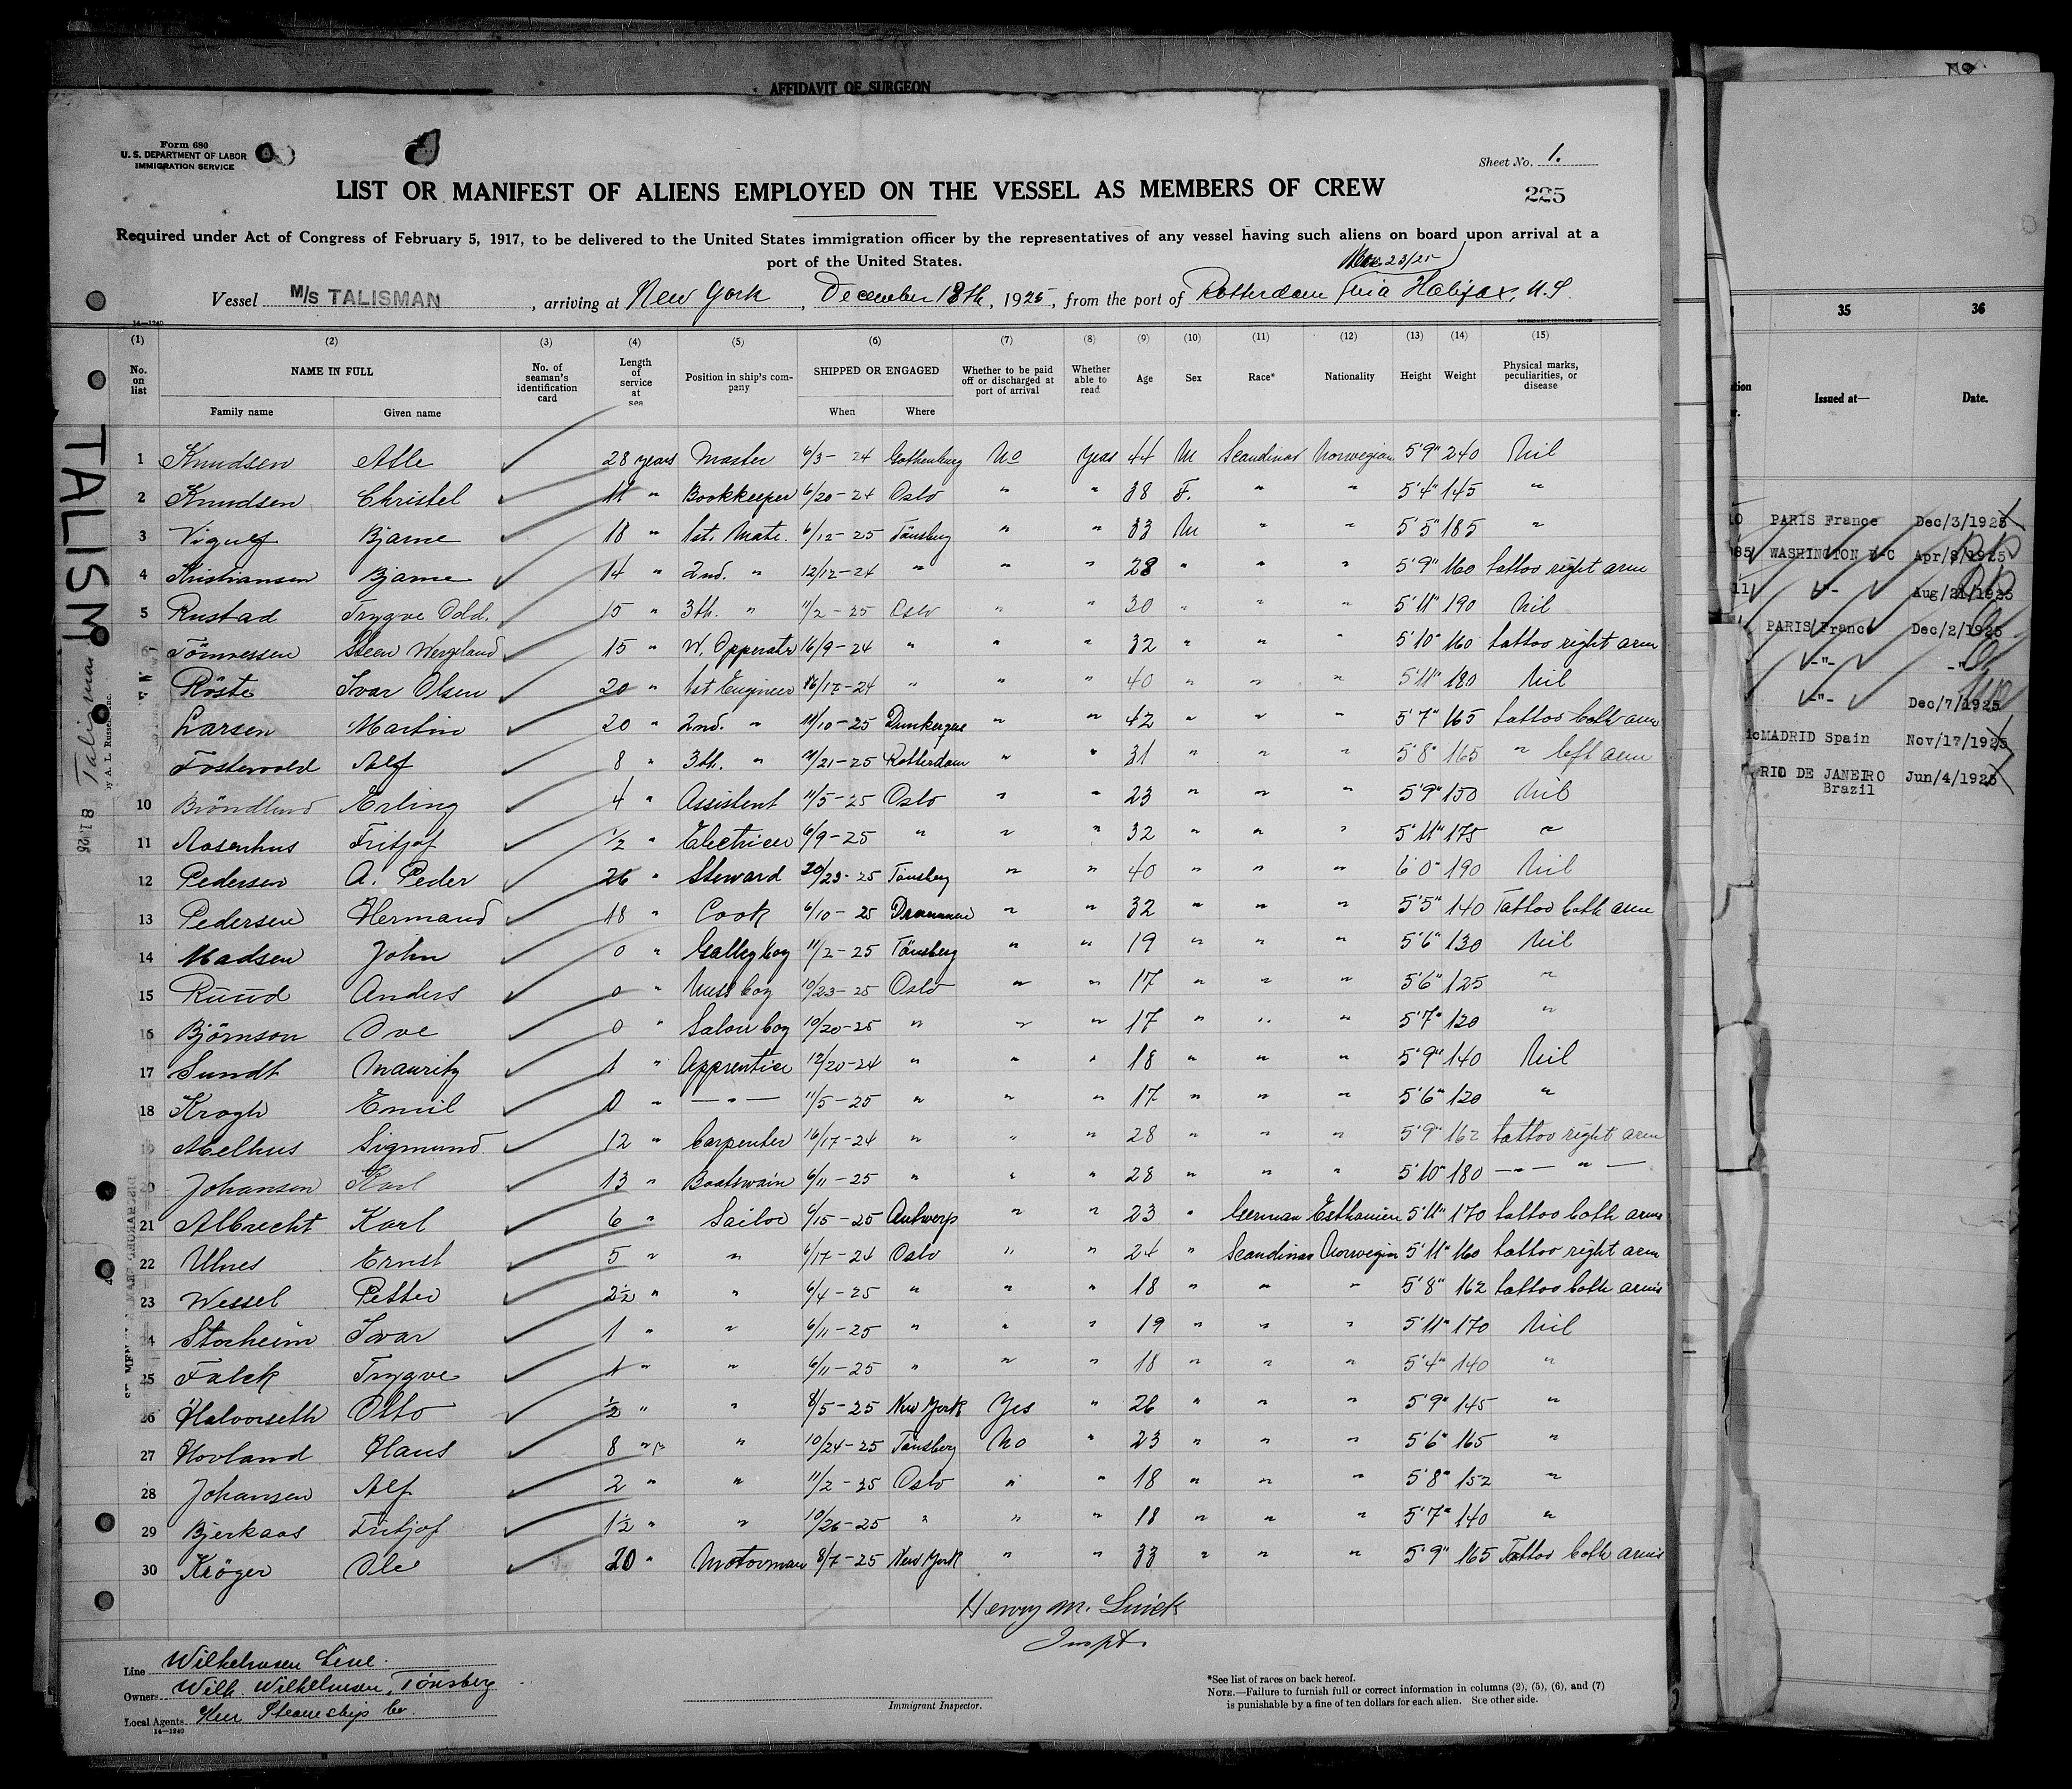 AFFIDAVIT OF SURGEON
Form 680
U. S. DEPARTMENT OF LABOR
IMMIGRATION SERVICE
Sheet No. 1.
LIST OR MANIFEST OF ALIENS EMPLOYED ON THE VESSEL AS MEMBERS OF CREW
225
Required under Act of Congress of February 5, 1917, to be delivered to the United States immigration officer by the representatives of any vessel having such aliens on board upon arrival at a
port of the United States.
23/25
Vessel M/S TALISMAN, arriving at New York, December 18th, 1925, from the port of Rotterdam via Halifax, N.S
14—1240
(1) (2) (3) (4) (5) (6) (7) (8) (9) (10) (11) (12) (13) (14) (15)
No. on list NAME IN FULL No. of seaman's identification card Length of service at sea Position in ship's company SHIPPED OR ENGAGED Whether to be paid off or discharged at port of arrival Whether able to read Age Sex Race* Nationality Height Weight Physical marks, peculiarities, or disease
Family name Given name When Where
1 Knudsen Atle 28 years Master 6/3- 24 Gothenburg No Yeas 44 M Scandinav Norwegian 5'9" 240 Nil
2 Knudsen Christel 11 " Bookkeeper 6/20-24 Oslo " " 38 F. " " 5'4" 145 "
3 Bjarne 18 " 1st. Mate. 6/12-25 Tönsberg " " 33 M " " 5'5" 185 "
4 Kristiansen Bjarne 14 " 2nd. " 12/12-24 " " " 28 " " " 5'9" 160 tattoo right arm
5 Rustad Trygve Odd. 15 " 3th. " 11/2-25 Oslo " " 30 " " " 5'11" 190 Nil
Tönnessen Steen Wergeland 15 " W. Opperatr 16/9-24 " " " 32 " " " 5'10" 160 tattoo right arm
Röste Ivar Olsen 20 " 1st Engineer 16/17-24 " " " 40 " " " 5'11" 180 Nil
Larsen Martin 20 " 2nd. " 11/10-25 Dunkerque " " 42 " " " 5'7" 165 tattoo both arm
Fostervold Alf 8 " 3th. " 11/21-25 Rotterdam " " 31 " " " 5'8" 165 " left arm
10 Bröndlund Erling 4 " Assistent 11/5-25 Oslo " " 23 " " " 5'9" 150 Nil
11 Aasenhus Fritjof 1/2 " Electricer 6/9-25 " " " 32 " " " 5'11" 175 "
12 Pedersen A. Peder 26 " Steward 10/23-25 Tönsberg " " 40 " " " 6'0" 190 Nil
13 Pedersen Hermand 18 " Cook 6/10-25 Drammen " " 32 " " " 5'5" 140 Tattoo both arm
14 Madsen John 0 " Galleyboy 11/2-25 Tönsberg " " 19 " " " 5'6" 130 Nil
15 Ruud Anders 0 " Messboy 10/23-25 Oslo " " 17 " " " 5'6" 125 "
16 Björnson Ove 0 " Saloonboy 10/20-25 " " " 17 " " " 5'7" 120 "
17 Sundt Mauritz 1 " Apprentice 12/20-24 " " " 18 " " " 5'9" 140 Nil
18 Krogh Emil 0 " — " — 11/5-25 " " " 17 " " " 5'6" 120 "
19 Melhus Sigmund 12 " Carpenter 16/17-24 " " " 28 " " " 5'9" 162 tattoo right arm
20 Johansen Karl 13 " Boatswain 6/11-25 " " " 28 " " " 5'10" 180 — " — " —
21 Albrecht Karl 6 " Sailor 6/15-25 Antwerp " " 23 " German Esthonien 5'11" 170 tattoo both arms
22 Ulnes Ernst 5 " " 6/17-24 Oslo " " 24 " Scandinav Norwegian 5'11" 160 tattoo right arm
23 Wessel Petter 2 1/2 " " 6/4-25 " " " 18 " " " 5'8" 162 tattoo both arms
24 Storheim Ivar 1 " " 6/11-25 " " " 19 " " " 5'11" 170 Nil
25 Falck Trygve 1 " " 6/11-25 " " " 18 " " " 5'4" 140 "
26 Halvorseth Otto 1/2 " " 8/5-25 New York Yes " 26 " " " 5'9" 145 "
27 Hovland Hans 8 " " 10/24-25 Tönsberg No " 23 " " " 5'6" 165 "
28 Johansen Alf 2 " " 11/2-25 Oslo " " 18 " " " 5'8" 152 "
29 Bjerkaas Fritjof 1 1/2 " " 10/26-25 " " " 18 " " " 5'7" 140 "
30 Kröger Ole 20 " Motorman 8/7-25 New York " " 33 " " " 5'9" 165 Tattoo both arms
Henry M.
Inspt.
Line Wilhelmsen Line.
Owners Wilh. Wilhelmsen, Tönsberg
Local Agents Kerr Steamship Co.
14—1240
Immigrant Inspector.
*See list of races on back hereof.
NOTE.—Failure to furnish full or correct information in columns (2), (5), (6), and (7)
is punishable by a fine of ten dollars for each alien. See other side.
TALISM
Talisman
35 36
Issued at— Date.
PARIS France Dec/3/1925
WASHINGTON D-C Apr/8/1925
-"- Aug/21/1925
PARIS France Dec/2/1925
-"- -"-
-"- Dec/7/1925
MADRID Spain Nov/17/1925
RIO DE JANEIRO Jun/4/1925
Brazil